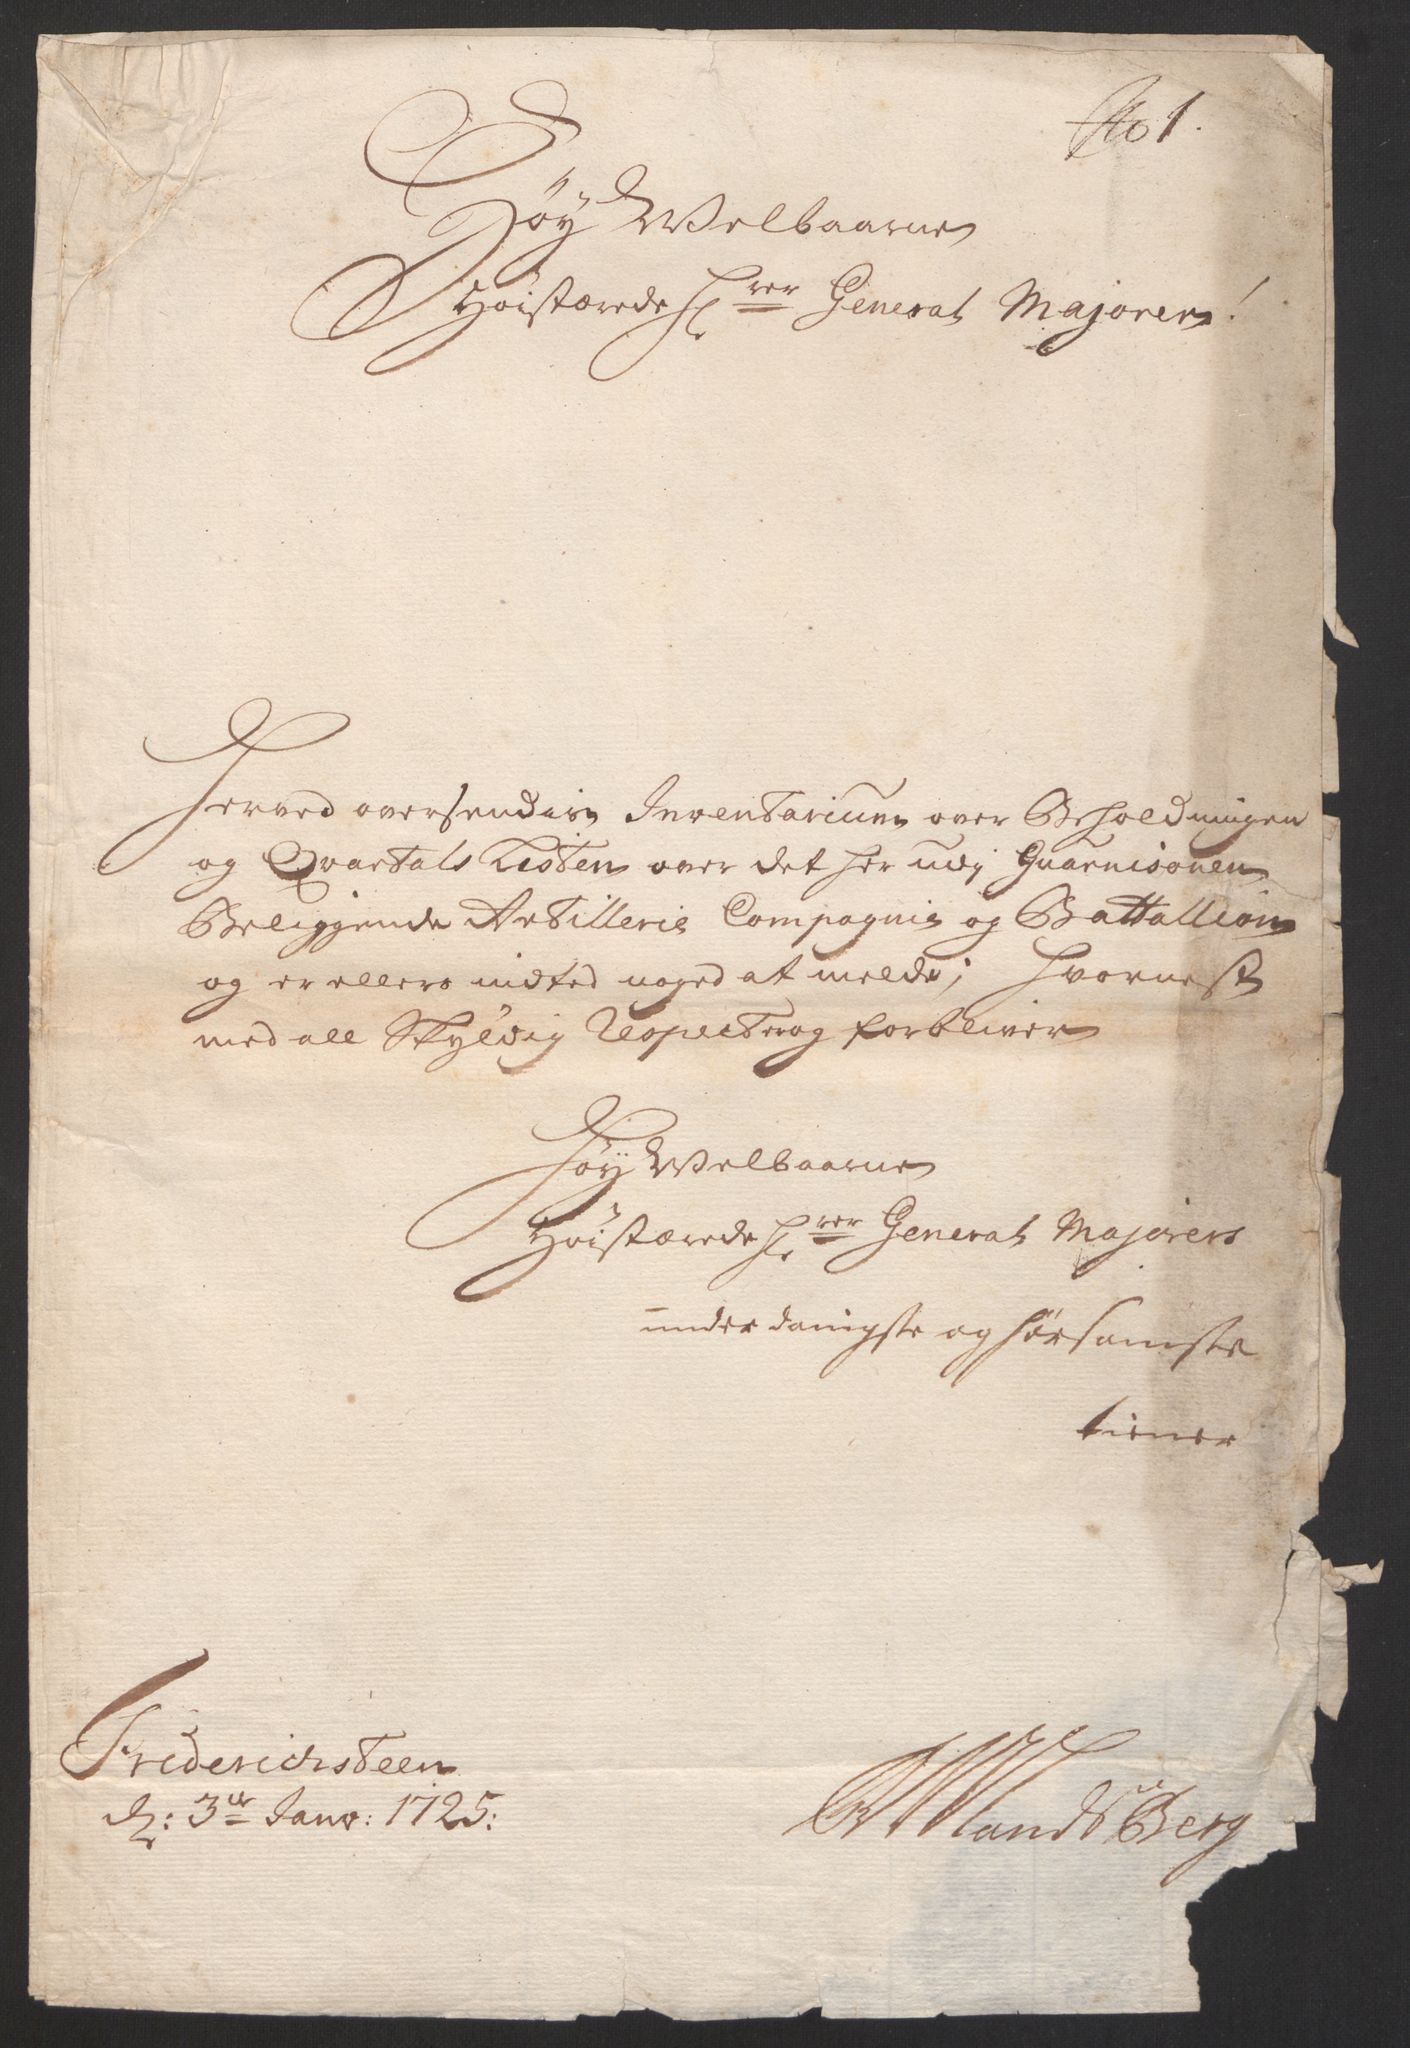 No 1.
Höy Welbaarne
Höistærede Hrer General Majorer!
Herved oversendis Inventarium over Beholdningen
og Qvartals Listen over det her udj Guarnisonen
Beliggende Artillerie Compagnie og Battallion
og er ellers indted noged at melde; hvornest
med all Skyldig Respect og forbliver
Höy Welbaarne
Höistærede Hrer General Majorers
underdanigste og hörsamste
tiener
Friderichsteen
d: 3te Janv: 1725:
LandsBerg